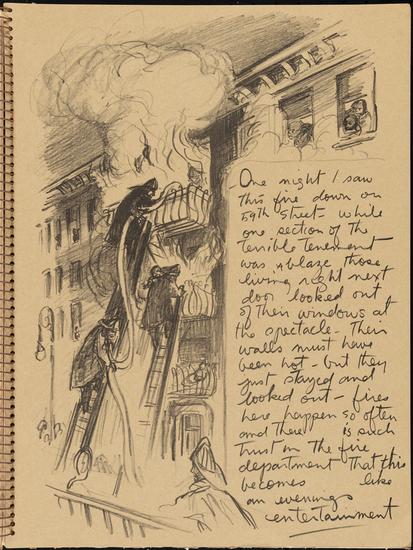 One night I saw
this fire down on
59th Street - while
one section of the
terrible tenement
was ablaze those
living right next
door looked out
of their windows at
the spectacle - Their
walls must have
been hot - but they
just stayed and
looked out - fires
here happen so often
and there is such
trust in the fire
department that this
becomes like
an evenings
entertainment